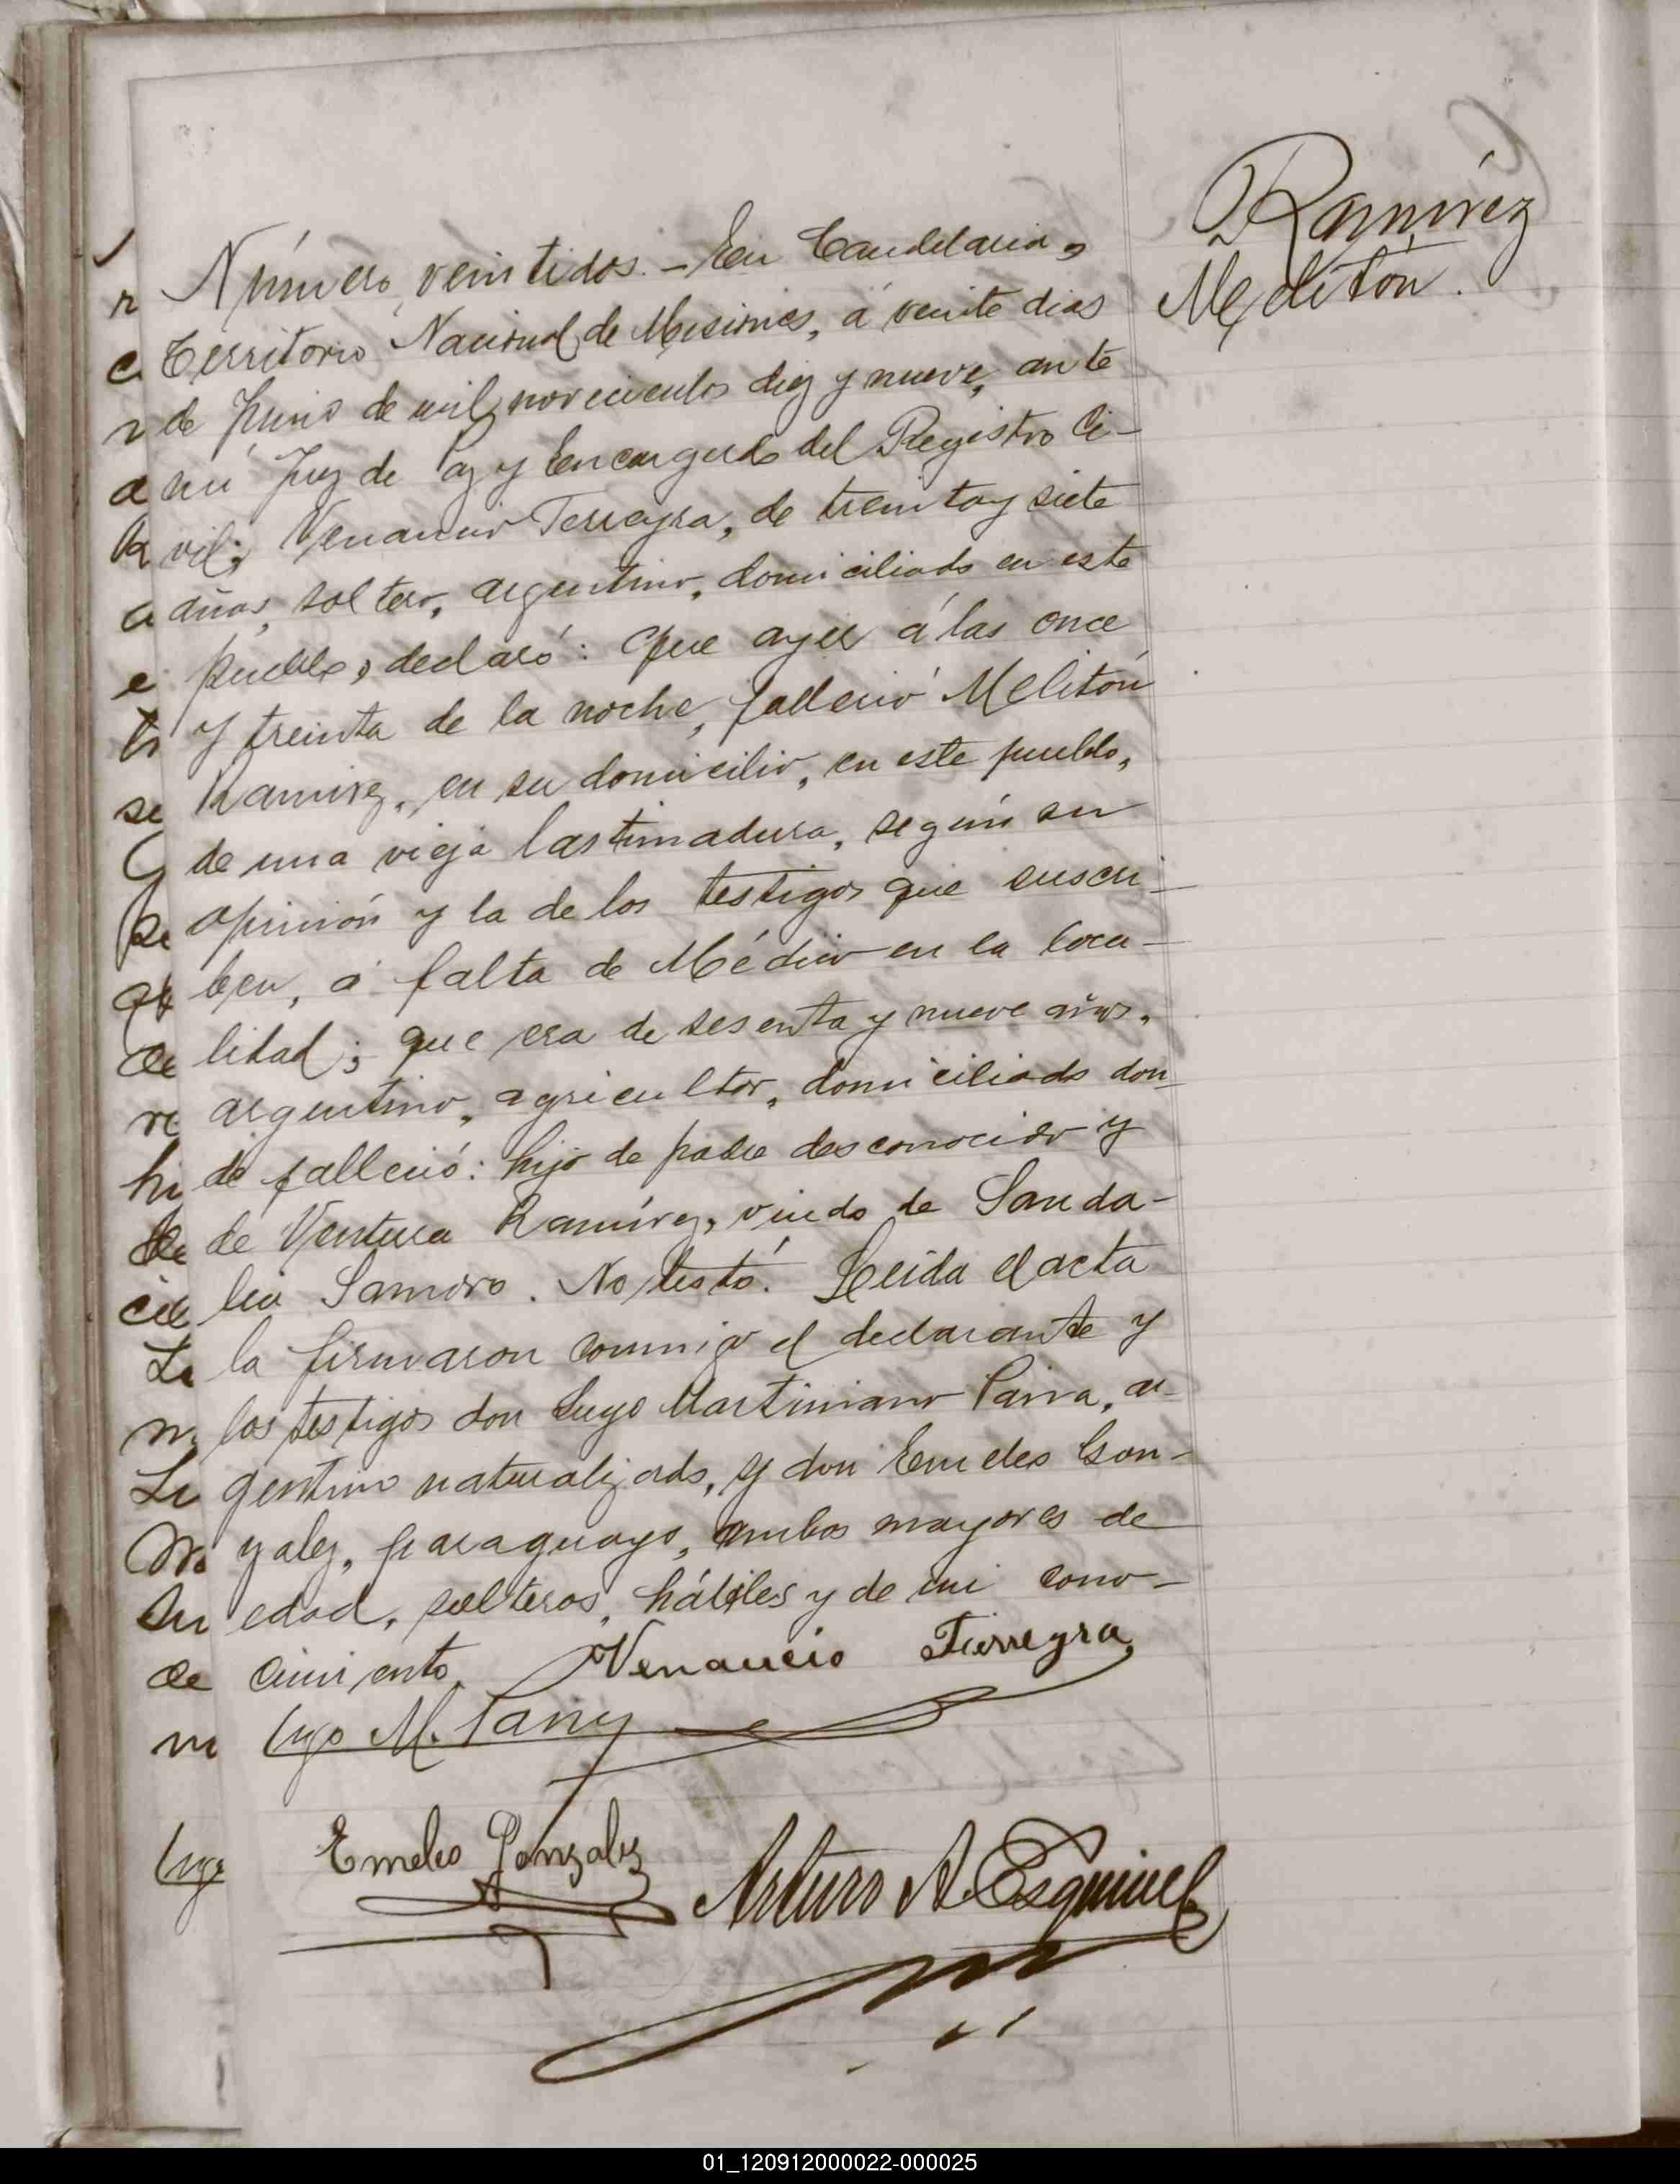 Ramírez
Melitón.
Número veintidos. – En Candelaria,
Territorio Nacional de Misiones, á veinte dias
de Junio de mil novecientos diez y nueve, ante
mí Juez de Paz y Encargado del Registro Ci-
vil; Venancio Ferreyra, de treinta y siete
años, soltero, argentino, domiciliado en este
pueblo, declaró: Que ayer á las once
y treinta de la noche, falleció Melitón
Ramirez, en su domicilio, en este pueblo,
de una vieja lastimadura, según su
opinión y la de los testigos que suscri-
ben, á falta de Médico en la loca-
lidad; que era de sesenta y nueve años,
argentino, agricultor, domiciliado don-
de falleció: hijo de padre desconocido y
de Ventura Ramírez, viudo de Sanda-
lia . No testó. Leida el acta
la firmaron conmigo el declarante y
los testigos don Lugo Martiniano , ar-
gentino naturalizado, y don Emeles Gon-
zalez, paraguayo, ambos mayores de
edad, solteros, hábiles y de mi cono-
cimiento. Venancio Fierreyra
Lugo M.
Emeles Gonzalez Arturo A. Esquivel
01_120912000022-000025